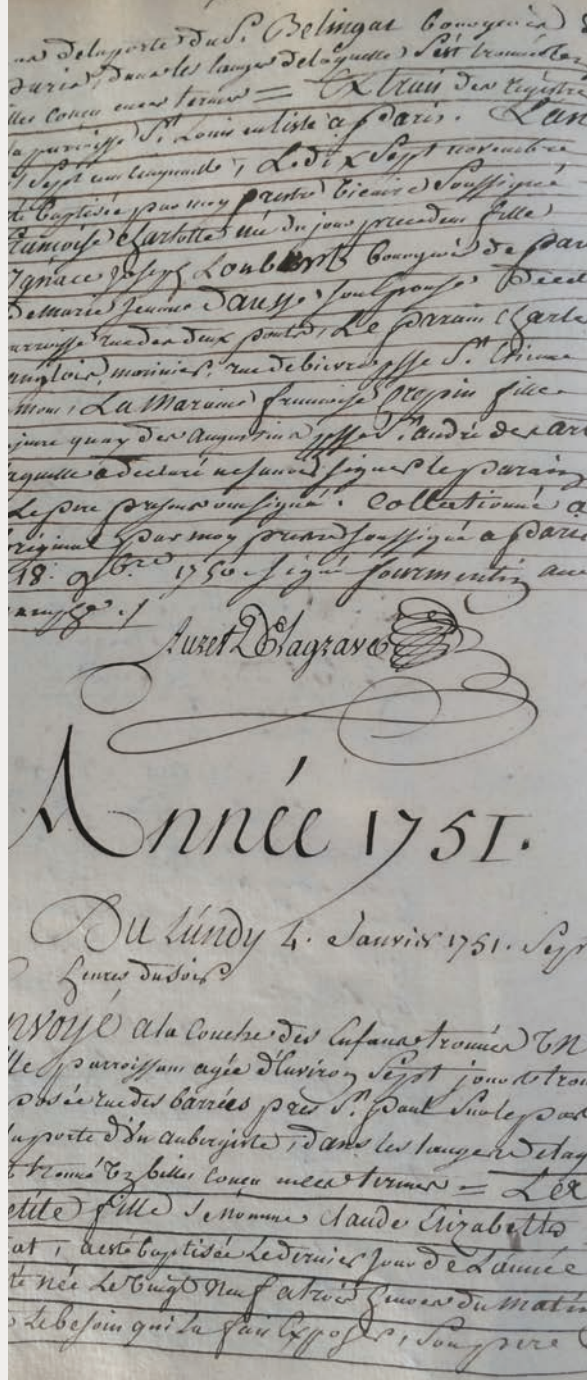 delaporte du S.r Belingat bourgeois
dans les langes de laquelle s'est trouvé
conçu en ces termes = Extrait des registres
paroisse S.t Louis en lisle a paris. L'an
sept cent cinquante, Le dix sept novembre
baptisée par moy prestre vicaire soussigné
francoise charlotte née du jour precedent fille
Ignace Joseph Loubert bourgeois de par
de marie jeanne Dausse son epouse
rue des deux ponts, Le parain charle
anglois, marinier, rue de bievre psse S.t Etienne
mont, La Maraine francoise propin fille
quay des augustins psse S.t andré des ar
laquelle a declaré ne savoir signer le parain
Le pere present ont signé. Collationné a
original par moy prestre soussigné a paris
18. 9.bre 1750. signé fourmentin
Auzet Delagrave
Année 1751.
Du Lundy 4. Janvier 1751. Sept
heures du soir
nvoyé a la Couche des Enfans trouvés Un
lle paroissant agée d'Environ Sept jours
posée rue des barrées pres S.t paul Sur le pas
la porte d'un aubergiste, dans les langes de laq
trouvé Un billet conçu en ces termes =
etite fille se nomme claude Elizabette
at, a esté baptisée Le dernier jour de L'année
té née Le vingt Neuf a trois heures du Matin
Le besoin qui La fait Exposer, Son pere